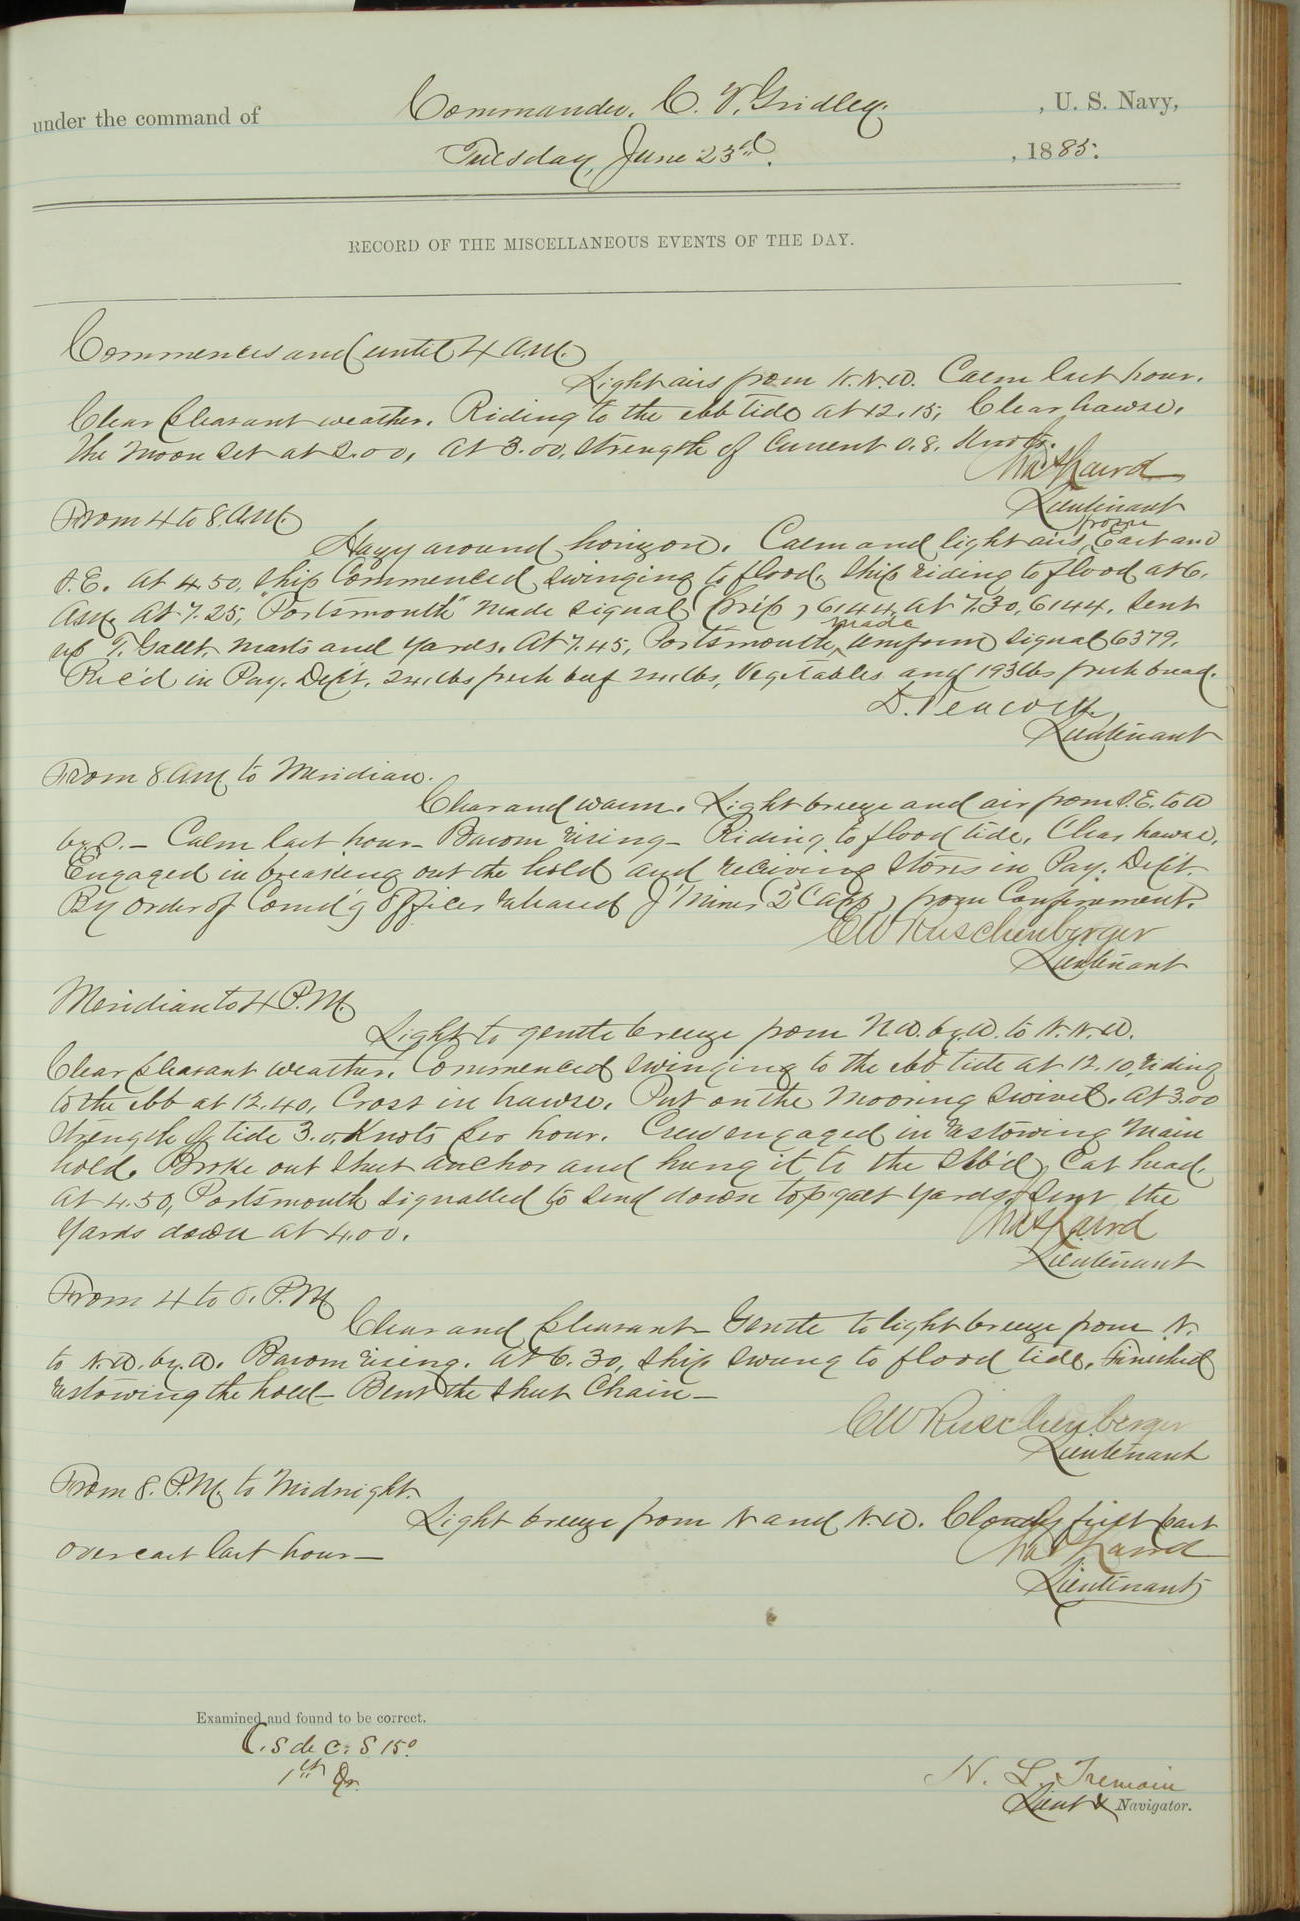 under the command of Commander, C. V. Gridley. , U. S. Navy,
Tuesday, June 23rd. , 1885.
RECORD OF THE MISCELLANEOUS EVENTS OF THE DAY.
Commences and until 4 A.M.
Light airs from N.N.W. Calm last hour.
Clear pleasant weather. Riding to the ebb tide at 12.15, Clear hawse.
The Moon set at 2.00, at 3.00, strength of Current 0.8. Knots.
Chas Laird
Lieutenant
From 4 to 8. A.M.
Hazy around horizon. Calm and light airs from East and
S.E. at 4.50, ship Commenced swinging to flood. Ship riding to flood at 6.
A.M. At 7.25, "Portsmouth" made signal (prep) 6144, at 7.30, 6144. Sent
up T. Gallt masts and yards. At 7.45, Portsmouth, made uniform signal 6379.
Rec'd in Pay. Dep't. 24. lbs fresh beef 24. lbs, Vegetables and 193 lbs fresh bread.
D. Peacock,
Lieutenant
From 8. A.M. to Meridian.
Clear and warm. Light breeze and air from S.E. to W
by S. – Calm last hour – Barom rising – Riding to flood tide, Clear hawse.
Engaged in breaking out the hold and receiving Stores in Pay. Dep't.
By order of Comd'g Officer released J Miner (2 C App) from Confinement.
C W Ruschenberger
Lieutenant
Meridian to 4 P.M.
Light to gentle breeze from N.W. by W. to N.N.W.
Clear pleasant weather. Commenced swinging to the ebb tide at 12.10, riding
to the ebb at 12.40, Cross in hawse. Put on the Mooring swivel. At 3.00
Strength of tide 3.0, Knots per hour. Crew engaged in restowing Main
hold. Broke out sheet anchor and hung it to the Stb'd, Cat head.
At 4.50, Portsmouth signalled to send down top galt yards, sent the
Yards down at 4.00.
Chas Laird
Lieutenant
From 4 to 8. P.M
Clear and pleasant – Gentle to light breeze from N.
to N.W. by W. Barom rising. At 6.30, ship swung to flood tide. Finished
restowing the hold – Bent the sheet Chain –
C W Ruschenberger
Lieutenant
From 8. P.M. to Midnight.
Light breeze from N and N.W. Cloudy first part
overcast last hour –
Chas Laird
Lieutenant
Examined and found to be correct.
C. S de C. S 15°
1th Qr.
N. L. Tremain
Lieut & Navigator.